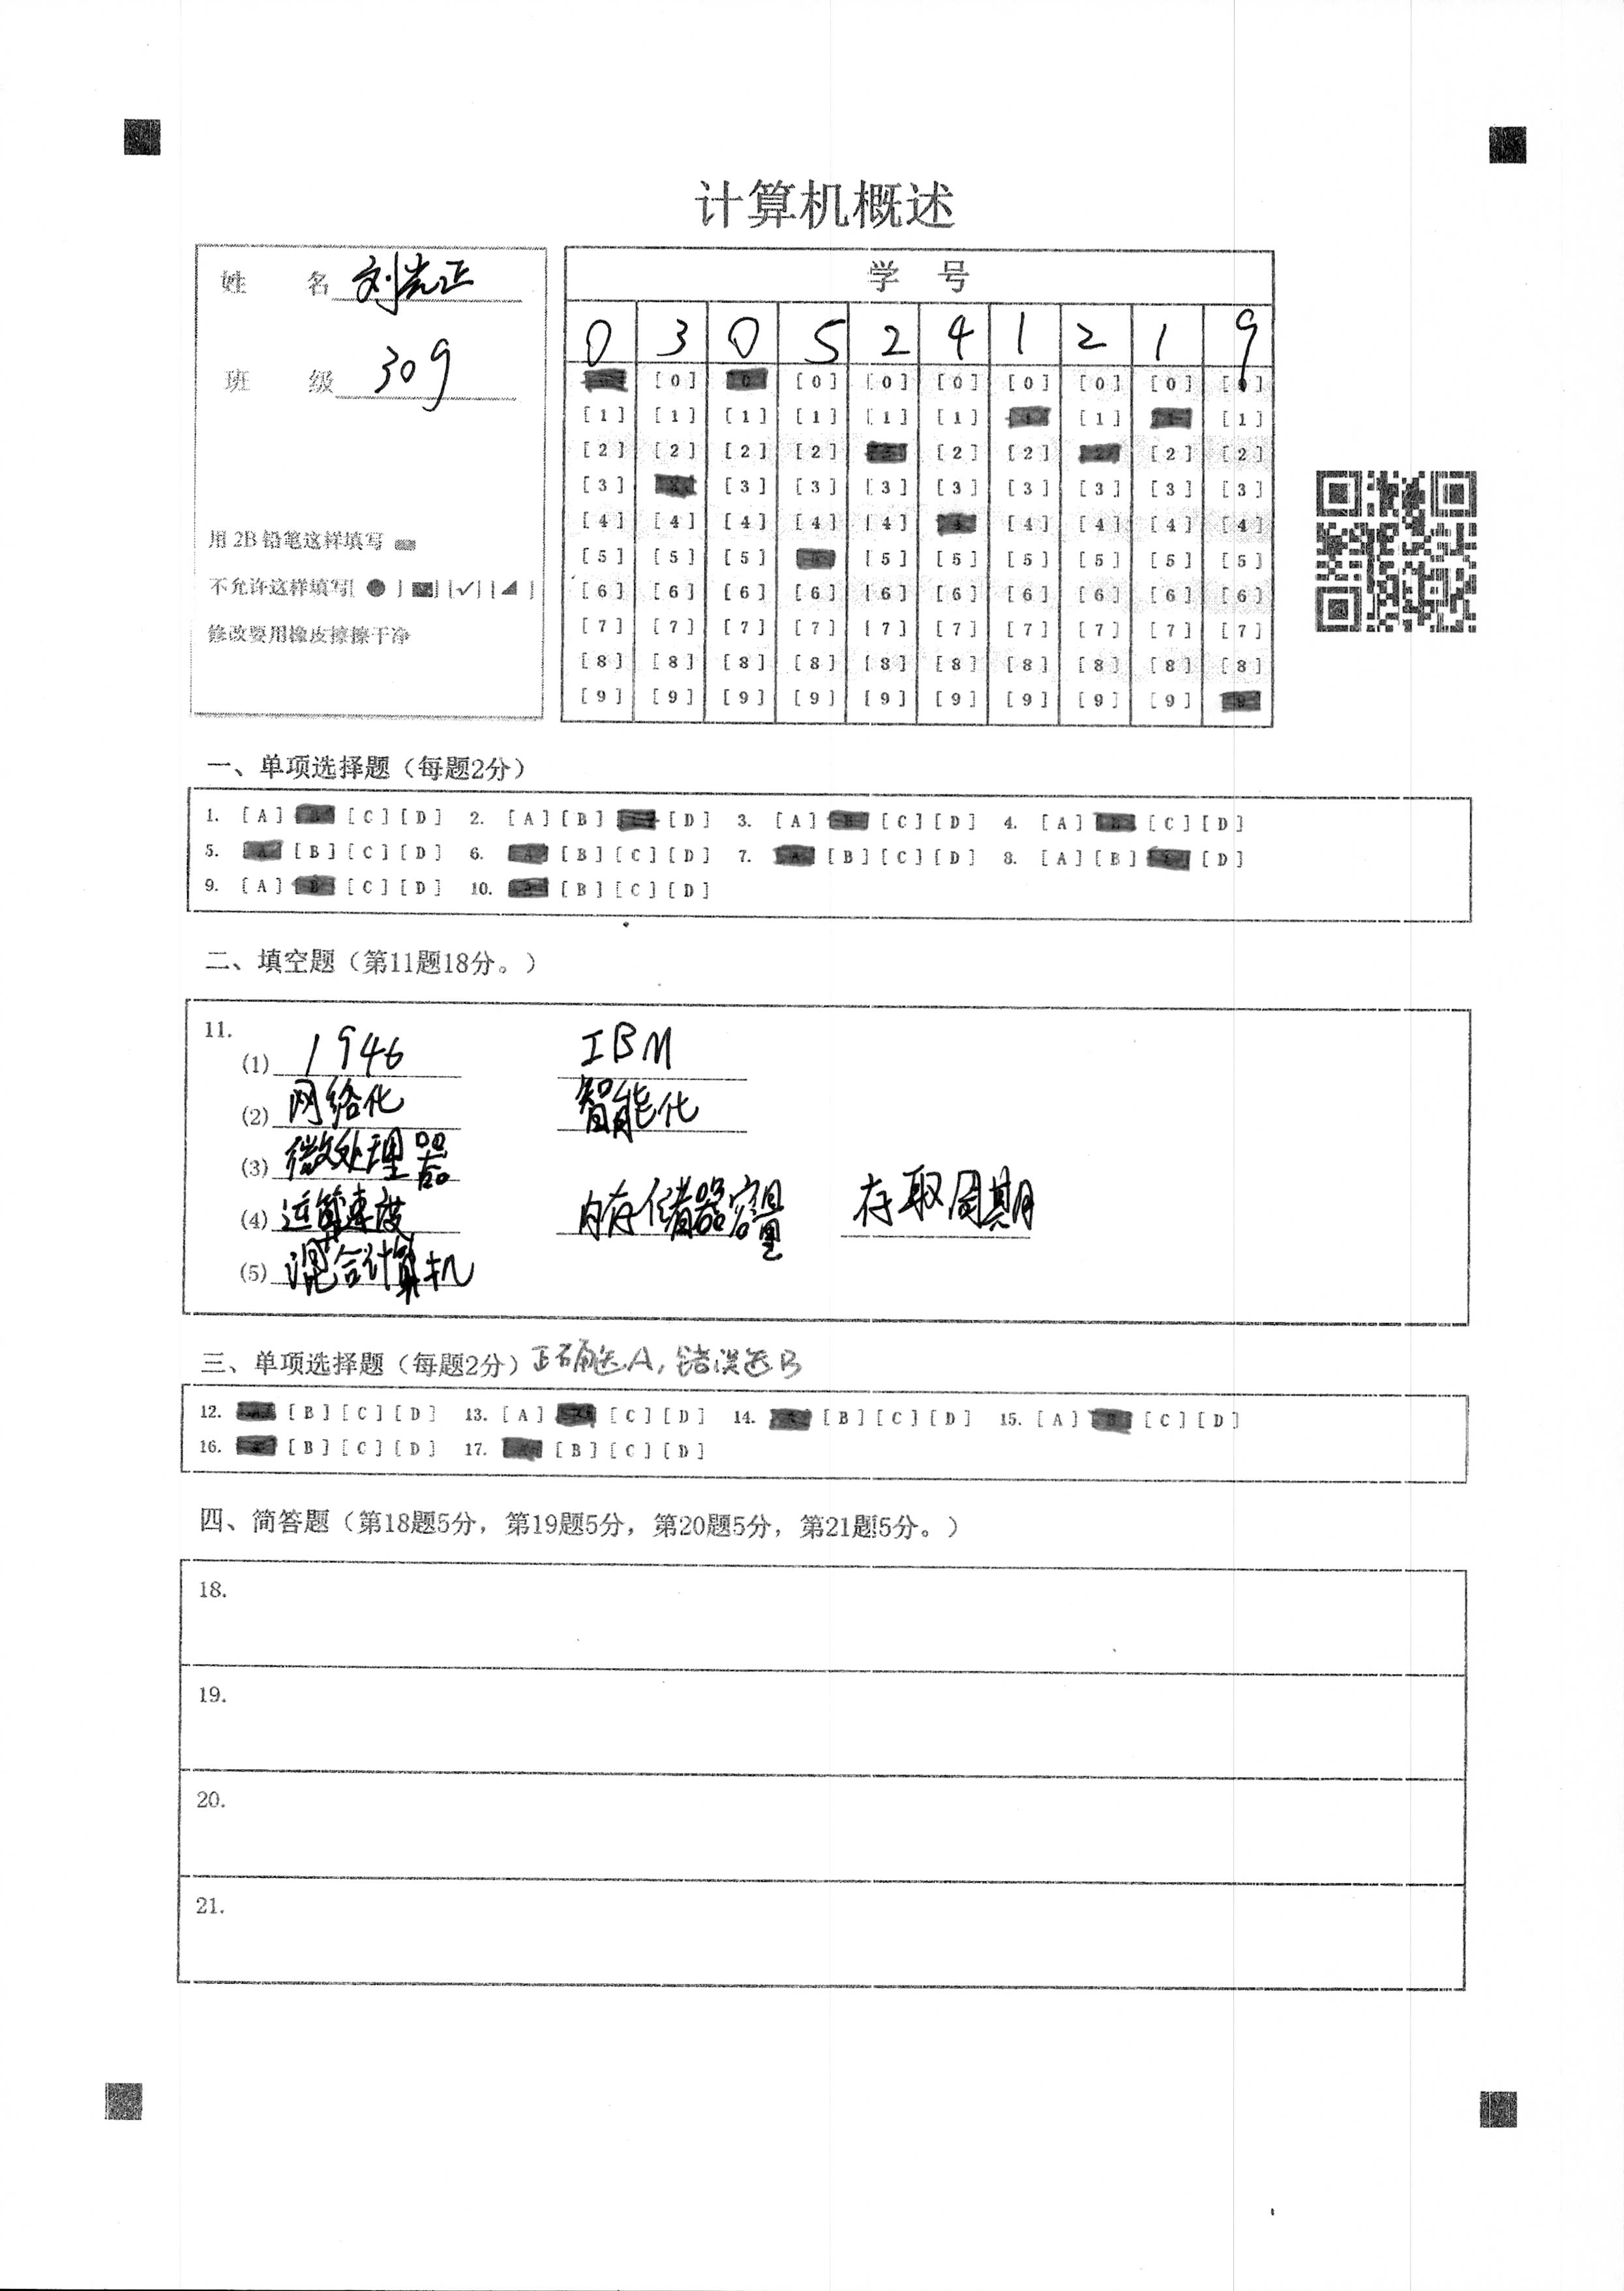 计算机概述
姓 名 刘光正
班 级 309
用 2B 铅笔这样填写
不允许这样填写[ ● ] [ ] [✓] [◢ ]
修改要用橡皮擦擦干净
学 号
0 3 0 5 2 4 1 2 1 9
[0] [0] [0] [0] [0] [0] [0] [0]
[1] [1] [1] [1] [1] [1] [1] [1]
[2] [2] [2] [2] [2] [2] [2] [2]
[3] [3] [3] [3] [3] [3] [3] [3] [3]
[4] [4] [4] [4] [4] [4] [4] [4] [4]
[5] [5] [5] [5] [5] [5] [5] [5] [5]
[6] [6] [6] [6] [6] [6] [6] [6] [6] [6]
[7] [7] [7] [7] [7] [7] [7] [7] [7] [7]
[8] [8] [8] [8] [8] [8] [8] [8] [8] [8]
[9] [9] [9] [9] [9] [9] [9] [9] [9]
一、单项选择题（每题2分）
1. [A] [C] [D] 2. [A] [B] [D] 3. [A] [C] [D] 4. [A] [C] [D]
5. [B] [C] [D] 6. [B] [C] [D] 7. [B] [C] [D] 8. [A] [B] [D]
9. [A] [C] [D] 10. [B] [C] [D]
二、填空题（第11题18分。）
11.
(1) 1946 IBM
(2) 网络化 智能化
(3) 微处理器
(4) 运算速度 内存储器容量 存取周期
(5) 混合计算机
三、单项选择题（每题2分）正确选A，错误选B
12. [B] [C] [D] 13. [A] [C] [D] 14. [B] [C] [D] 15. [A] [C] [D]
16. [B] [C] [D] 17. [B] [C] [D]
四、简答题（第18题5分，第19题5分，第20题5分，第21题5分。）
18.
19.
20.
21.